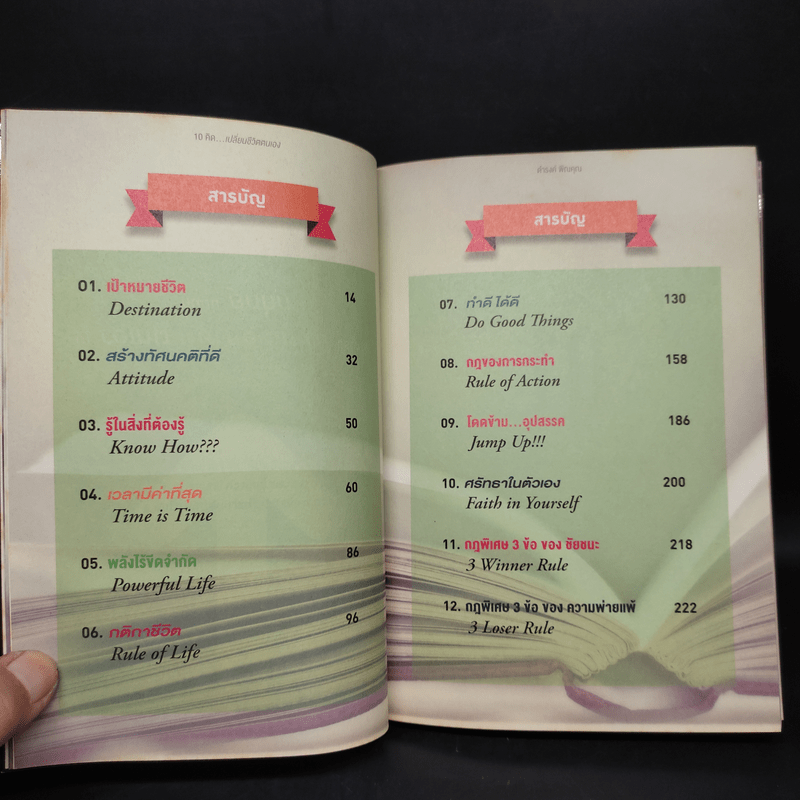 10 คิด...เปลี่ยนชีวิตตนเอง
สารบัญ
01. เป้าหมายชีวิต 14
Destination
02. สร้างทัศนคติที่ดี 32
Attitude
03. รู้ในสิ่งที่ต้องรู้ 50
Know How???
04. เวลามีค่าที่สุด 60
Time is Time
05. พลังไร้ขีดจำกัด 86
Powerful Life
06. กติกาชีวิต 96
Rule of Life
ดำรงค์ พิณคุณ
สารบัญ
07. ทำดี ได้ดี 130
Do Good Things
08. กฎของการกระทำ 158
Rule of Action
09. โดดข้าม...อุปสรรค 186
Jump Up!!!
10. ศรัทธาในตัวเอง 200
Faith in Yourself
11. กฎพิเศษ 3 ข้อ ของ ชัยชนะ 218
3 Winner Rule
12. กฎพิเศษ 3 ข้อ ของ ความพ่ายแพ้ 222
3 Loser Rule